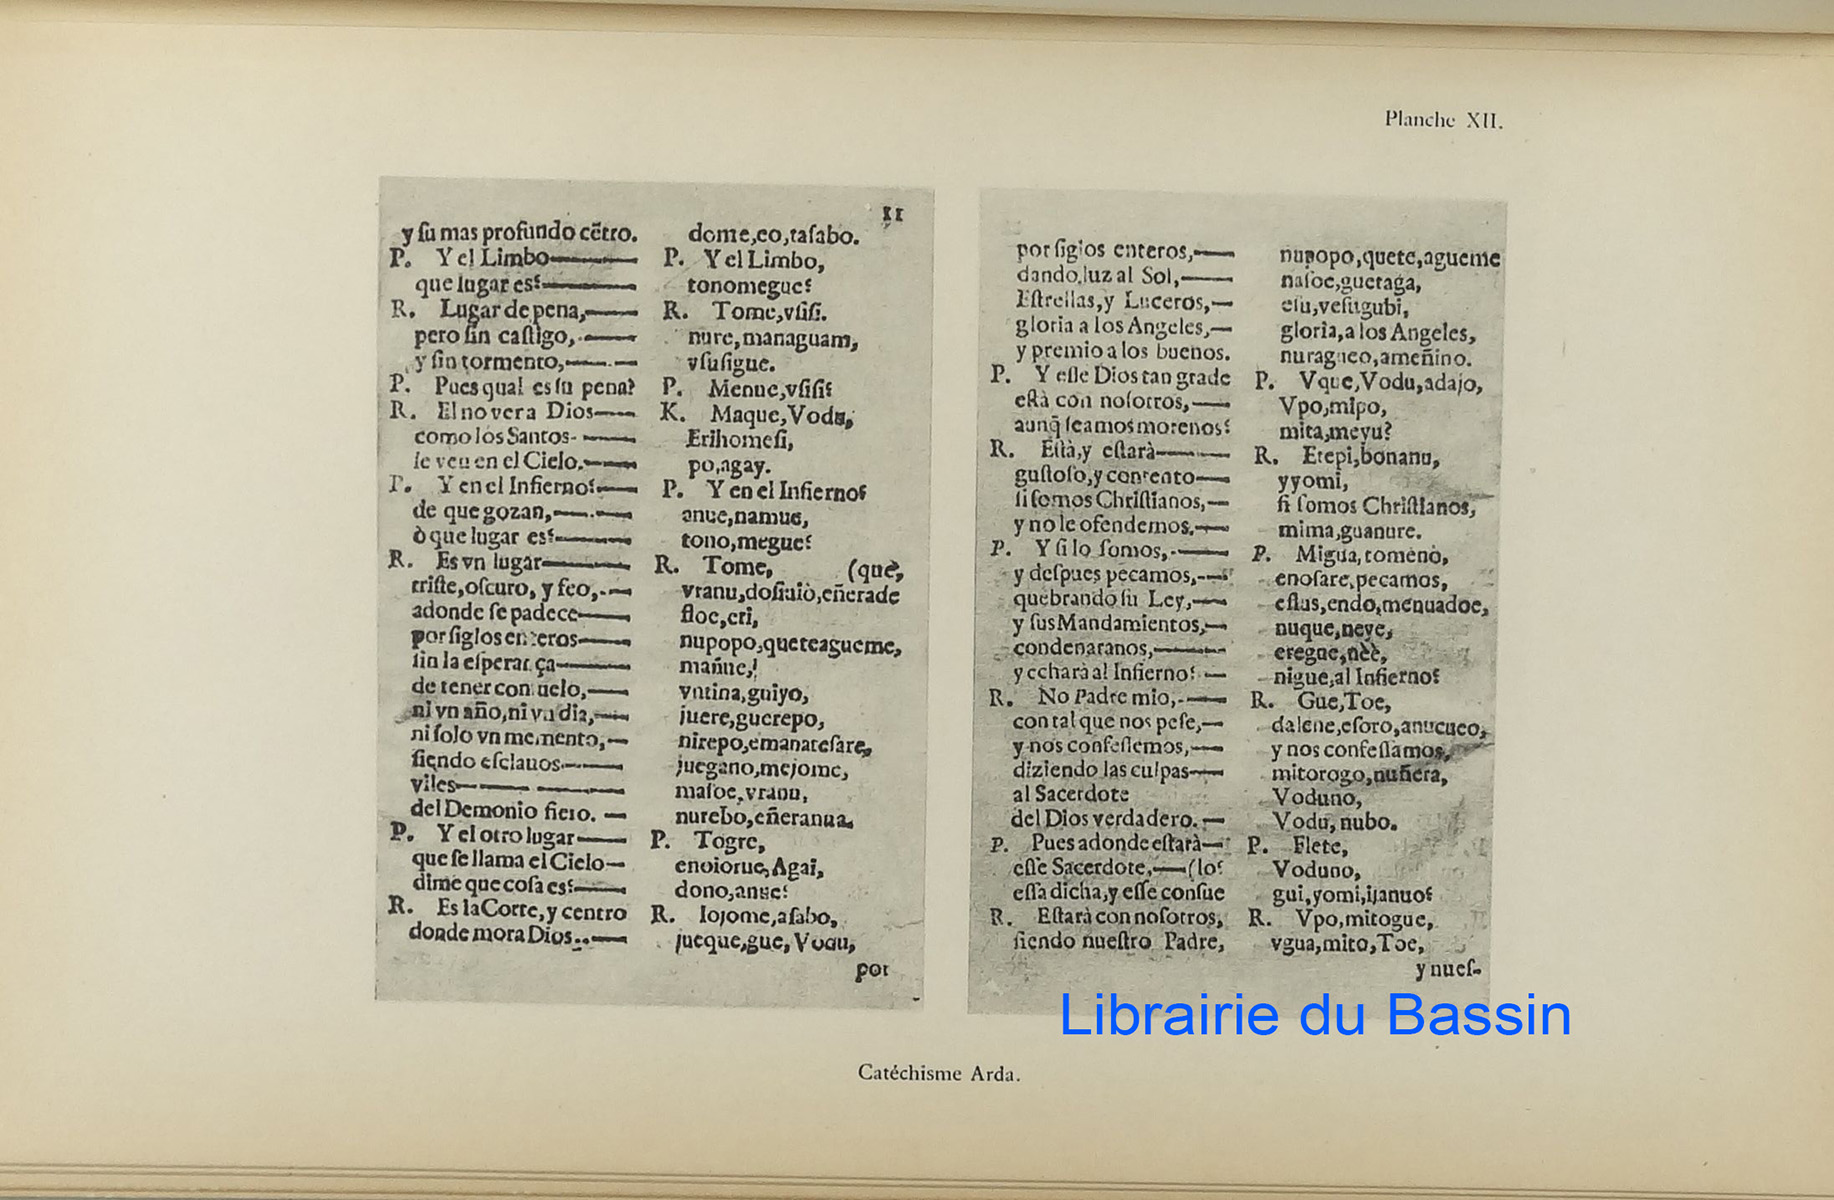 Planche XII.
11
y ſu mas profundo cẽtro.
P. Y el Limbo
que lugar es?
R. Lugar de pena,
pero ſin caſtigo,
y ſin tormento,
P. Pues qual es ſu pena?
R. El no vera Dios
como los Santos
le ven en el Cielo.
P. Y en el Infierno?
de que gozan,
ò que lugar es?
R. Es vn lugar
triſte, oſcuro, y feo,
adonde ſe padece
por ſiglos enteros
ſin la eſperança
de tener conſuelo,
ni vn año, ni vn dia,
ni ſolo vn momento,
ſiendo eſclauos
viles
del Demonio fiero.
P. Y el otro lugar
que ſe llama el Cielo
dime que coſa es?
R. Es la Corte, y centro
donde mora Dios.
dome,eo,taſabo.
P. Y el Limbo,
tonomegue?
R. Tome,vſiſi.
nure,managuam,
vſuſigue.
P. Menue,vſiſi?
K. Maque,Vodu,
Erihomeſi,
po,agay.
P. Y en el Infierno?
anue,namue,
tono,megue?
R. Tome, (què,
vranu,doſiuiò,eñerade
floe,eri,
nupopo,queteagueme,
mañue,
vntina,guiyo,
juere,guerepo,
nirepo,emanareſare,
juegano,mejome,
maſoe,vranu,
nurebo,eñeranua.
P. Togre,
enoiorue,Agai,
dono,anue?
R. Iojome,aſabo,
jueque,gue, Vodu,
por
por ſiglos enteros,
dando luz al Sol,
Eſtrellas,y Luceros,
gloria a los Angeles,
y premio a los buenos.
P. Y eſſe Dios tan grade
eſtà con noſotros,
aunq̃ ſeamos morenos?
R. Eſtà,y eſtarà
guſtoſo,y contento
ſi ſomos Chriſtianos,
y no le ofendemos.
P. Y ſi lo ſomos,
y deſpues pecamos,
quebrando ſu Ley,
y ſus Mandamientos,
condenaranos,
y echarà al Infierno?
R. No Padre mio,
con tal que nos peſe,
y nos confeſſemos,
diziendo las culpas
al Sacerdote
del Dios verdadero.
P. Pues adonde eſtarà
eſſe Sacerdote, (lo?
eſſa dicha,y eſſe conſue
R. Eſtarà con noſotros,
ſiendo nueſtro Padre,
nupopo,quete,agueme
naſoe,guetaga,
eſu,veſugubi,
gloria,a los Angeles,
nuragueo,ameñino.
P. Vque,Vodu,adajo,
Vpo,mipo,
mita,meyu?
R. Etepi,bonanu,
yyomi,
ſi ſomos Chriſtianos,
mima,guanure.
P. Migua,tomenò,
enoſare,pecamos,
eſtas,endo,menuadoe,
nuque,neye,
eregue,nèè,
nigue,al Infierno?
R. Gue,Toe,
dalene,eſoro,anucueo,
y nos confeſſamos,
mitorogo,nuñera,
Voduno,
Vodu, nubo.
P. Flete,
Voduno,
gui,yomi,ijanuo?
R. Vpo,mitogue,
vgua,mito,Toe,
y nueſ-
Librairie du Bassin
Catéchisme Arda.